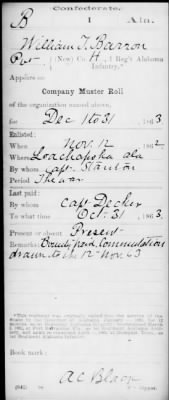 Confederate.
B 1 Ala.
William T. Barron
Pvt., (New) Co. H, 1 Reg't Alabama
Infantry.*
Appears on
Company Muster Roll
of the organization named above,
for Dec 1 to 31, 1863.
Enlisted:
When Nov. 12, 1862.
Where Loachapoka Ala
By whom Capt. Stanton
Period The war
Last paid:
By whom Capt Decher
To what time Oct. 31, 1863.
Present or absent Present
Remarks: Bounty paid, Commutation
drawn to 12 Nov 63
Book mark:
(642)
Copyist.